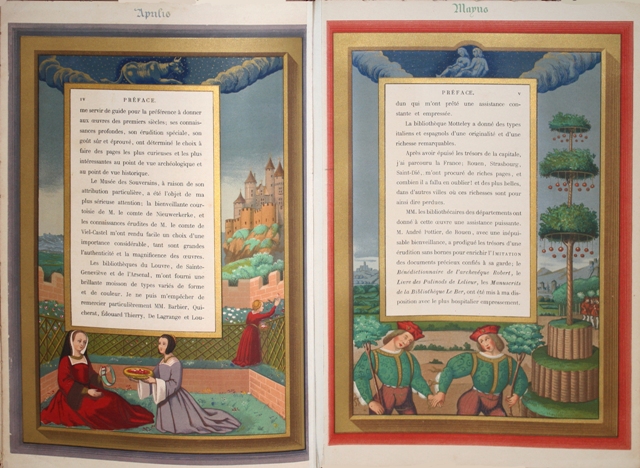 Aprilis
IV PRÉFACE.
me servir de guide pour la préférence à donner
aux œuvres des premiers siècles; ses connais-
sances profondes, son érudition spéciale, son
goût sûr et éprouvé, ont déterminé le choix à
faire des pages les plus curieuses et les plus
intéressantes au point de vue archéologique et
au point de vue historique.
Le Musée des Souverains, à raison de son
attribution particulière, a été l'objet de ma
plus sérieuse attention; la bienveillante cour-
toisie de M. le comte de Nieuwerkerke, et
les connaissances érudites de M. le comte de
Viel-Castel m'ont rendu facile un choix d'une
importance considérable, tant sont grandes
l'authenticité et la magnificence des œuvres.
Les bibliothèques du Louvre, de Sainte-
Geneviève et de l'Arsenal, m'ont fourni une
brillante moisson de types variés de forme
et de couleur. Je ne puis m'empêcher de
remercier particulièrement MM. Barbier, Qui-
cherat, Édouard Thierry, De Lagrange et Lou-
Mayus
PRÉFACE. V
dun qui m'ont prêté une assistance con-
stante et empressée.
La bibliothèque Motteley a donné des types
italiens et espagnols d'une originalité et d'une
richesse remarquables.
Après avoir épuisé les trésors de la capitale,
j'ai parcouru la France; Rouen, Strasbourg,
Saint-Dié, m'ont procuré de riches pages, et
combien il a fallu en oublier! et des plus belles,
dans d'autres villes où ces richesses sont pour
ainsi dire perdues.
MM. les bibliothécaires des départements ont
donné à cette œuvre une assistance puissante.
M. André Pottier, de Rouen, avec une inépui-
sable bienveillance, a prodigué les trésors d'une
érudition sans bornes pour enrichir l'IMITATION
des documents précieux confiés à sa garde; le
Bénédictionnaire de l'archevêque Robert, le
Livre des Palinods de Leloeur, les Manuscrits
de la Bibliothèque Le Ber, ont été mis à ma dis-
position avec le plus hospitalier empressement.